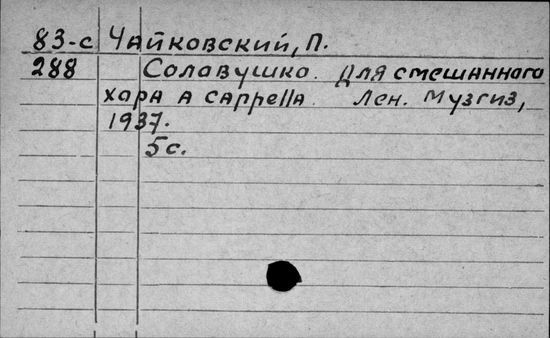 83-с Чайковский, П.
288 Солавушко. Для смешаннаго
хара A cappella. Лен. Музгиз,
1937.
5 с.